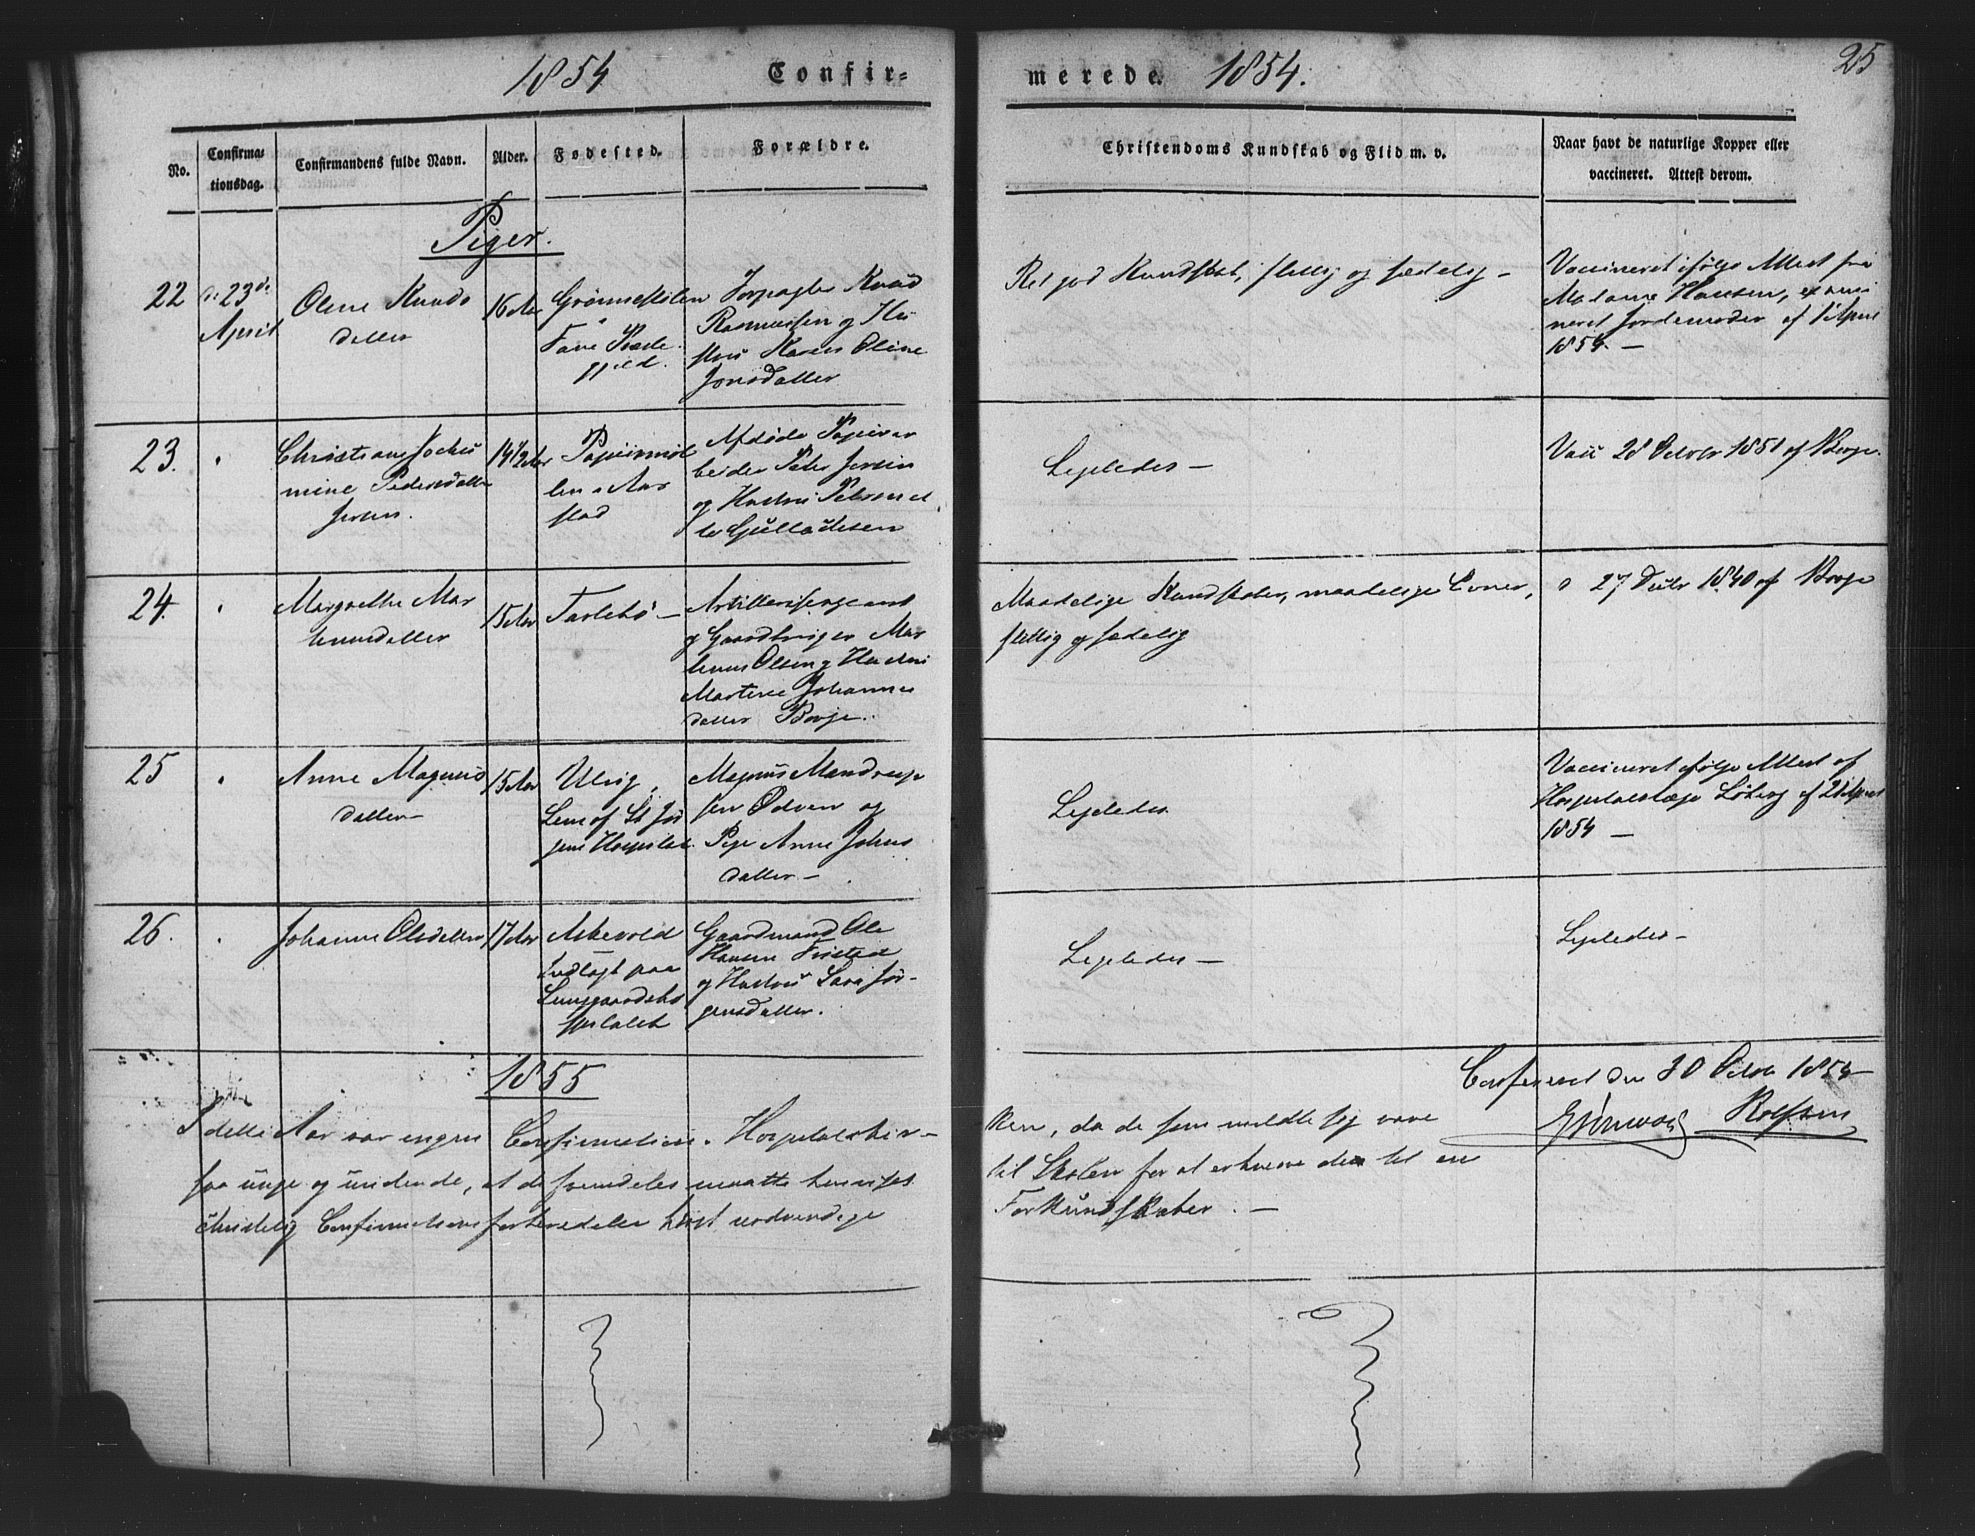 1854 Confir=
merede. 1854.
25
No.
Confirma-
tionsdag.
Confirmandens fulde Navn.
Alder.
Fødested.
Forældre.
Christendoms Kundskab og Flid m. v.
Naar havt de naturlige Kopper eller
vaccineret. Attest derom.
Piger.
22
23de
April
Olene Knuds
datter
16 Aar
Grønneskolen
Fane Præste
gjeld.
Forpagter Knud
Rasmussen og Hu
stru Karen Oline
Jonsdatter
Ret god Kundskab, flittig og sædelig –
Vaccineret ifølge Attest fra
Madame Hansen, exami
neret Jordemoder af April
1854. –
23.
Christiane Jochu
mine Pedersdatter
Jersin.
14 1/2 Aar
Papiirmøl
len Aar
stad
Afdøde Papirar
beider Peter Jersin
og Hustru Petronel
le Gulladesen
Ligeledes –
Vacc 28 Octobr 1851 af Borge.
24.
Margrethe Mar
kunsdatter
15 Aar
Tarlebø –
Artillerisergeant
og Gaardbruger Mar
kuns Olsen og Hustru
Martene Johannes
datter Borge.
Maadelige Kundskaber, maadelige Evner,
flittig og sædelig
27 Decbr 1840 af Borge
25
Anne Magnus
datter –
15 Aar
Ulvig,
Lem af St Jør
gens Hospital.
Magnus Mandrup
sen Odven og
Pige Anne Johns
datter –
Ligeledes
Vaccineret ifølge Attest af
Hospitalslæge Løberg af 21 April
1854 –
26.
Johanne Olsdatter
17 Aar
Askevold
Indlagt paa
Lungaardsho
spitalet
Gaardmand Ole
Hansen
og Hustru Sara Jør-
gensdatter.
Ligeledes –
Ligeledes –
1855
Confereret den 30 Octob 1854
Grønvold Rolfsen
I dette Aar var ingen Confirmation i Hospitalskir-
ken, da de som meldte sig vare
saa unge og uvidende, at de fremdeles maatte henvises
til Skolen for at erhverve dem til en
christelig Confirmations forberedelse høist nødvendige
Forkundskaber. –